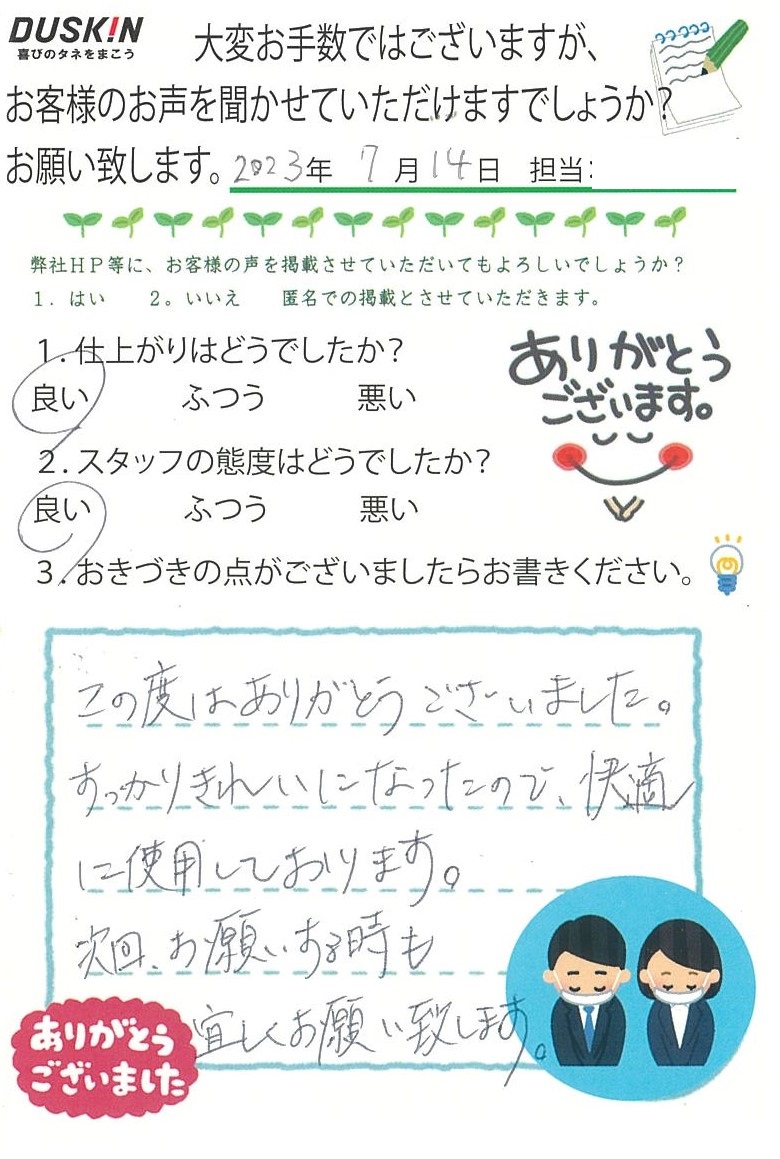 DUSK!N
喜びのタネをまこう
大変お手数ではございますが、
お客様のお声を聞かせていただけますでしょうか?
お願い致します。2023年 7月14日 担当:
弊社HP等に、お客様の声を掲載させていただいてもよろしいでしょうか?
1. はい 2。いいえ 匿名での掲載とさせていただきます。
1.仕上がりはどうでしたか?
良い ふつう 悪い
ありがとう
ございます。
2.スタッフの態度はどうでしたか?
良い ふつう 悪い
3.おきづきの点がございましたらお書きください。
この度はありがとうございました。
すっかりきれいになったので、快適
に使用しております。
次回、お願いする時も
宜しくお願い致します。
ありがとう
ございました